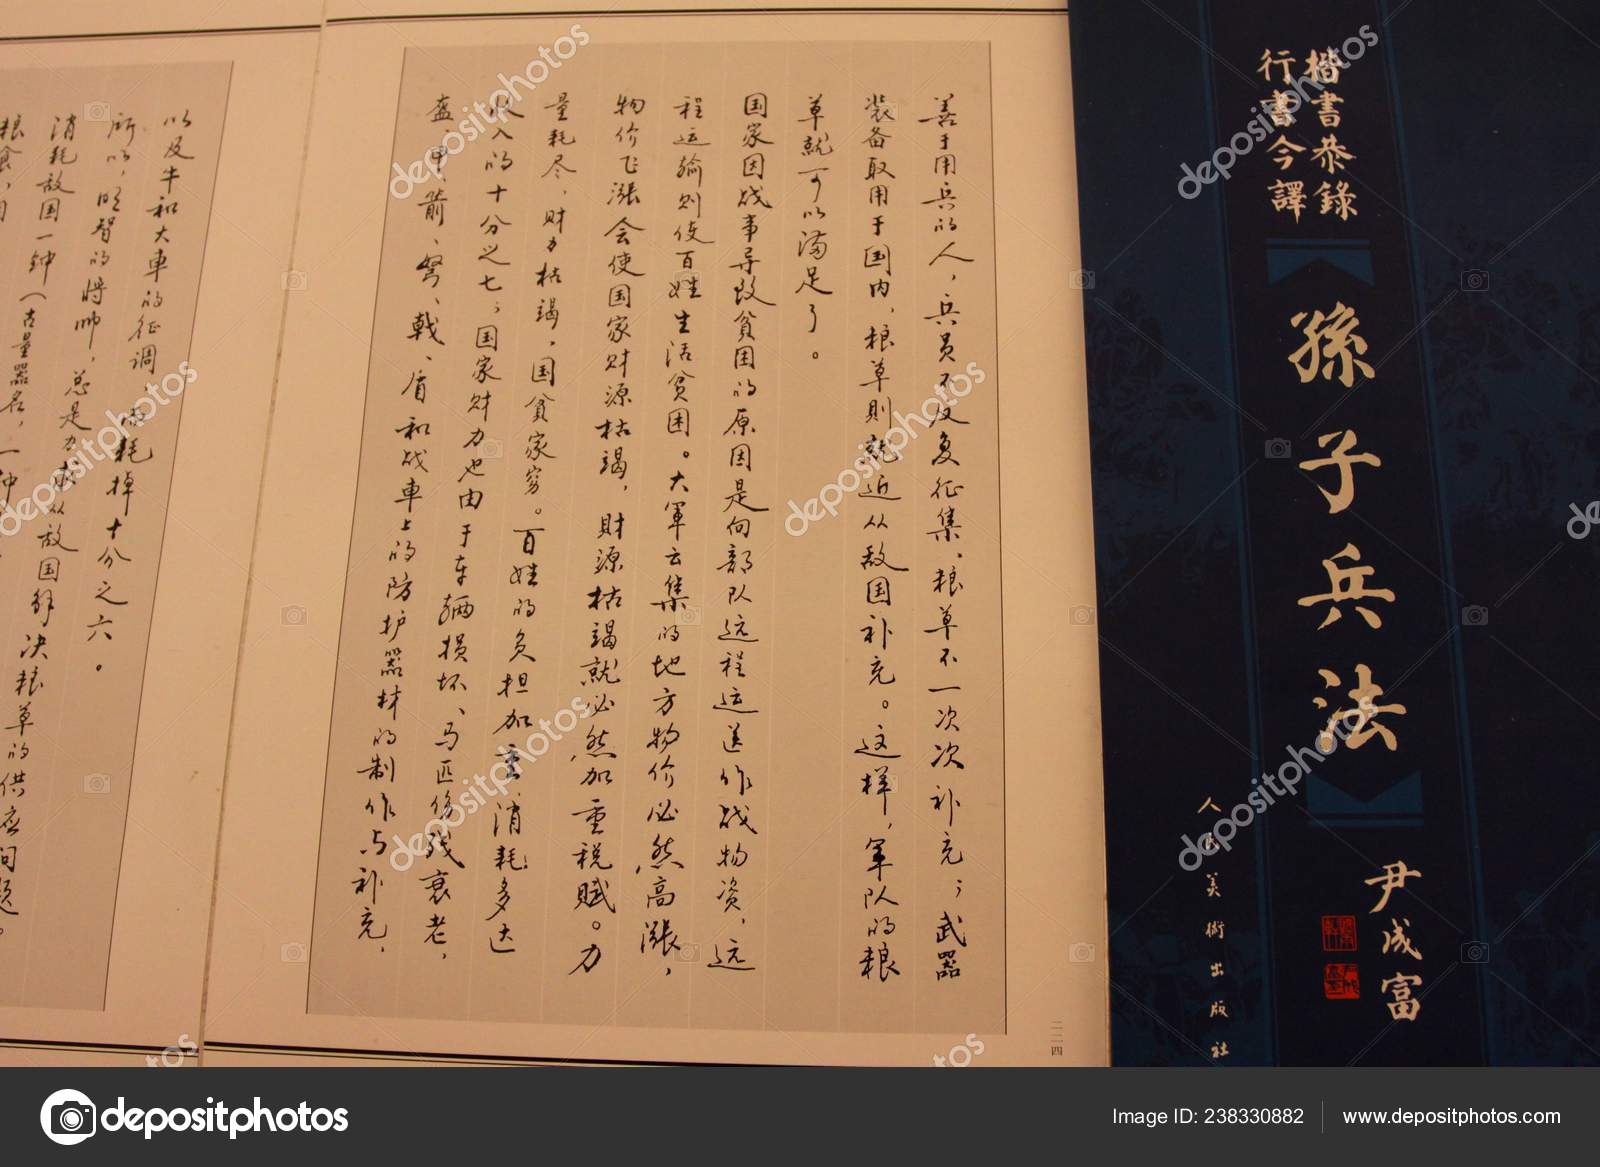 楷書恭錄
行書今譯
孫子兵法
尹成富
人民美術出版社
善于用兵的人，兵员不反复征集，粮草不一次次补充；武器
装备取用于国内，粮草则就近从敌国补充。这样，军队的粮
草就可以满足了。
国家因战事导致贫困的原因是向部队远程运送作战物资，远
程运输则使百姓生活贫困。大军云集的地方物价必然高涨，
物价飞涨会使国家财源枯竭，财源枯竭就必然加重税赋。力
量耗尽，财力枯竭，国贫家穷。百姓的负担加重，消耗多达
收入的十分之七；国家财力也由于车辆损坏、马匹伤残衰老，
盔、甲、箭、弩、戟、盾和战车上的防护器材的制作与补充，
二二四
以及牛和大车的征调，而耗掉十分之六。
所以，明智的将帅，总是力求从敌国解决粮草的供应问题。
消耗敌国一钟（古量器名，一钟
粮食，相
depositphotos
Image ID: 238330882
www.depositphotos.com